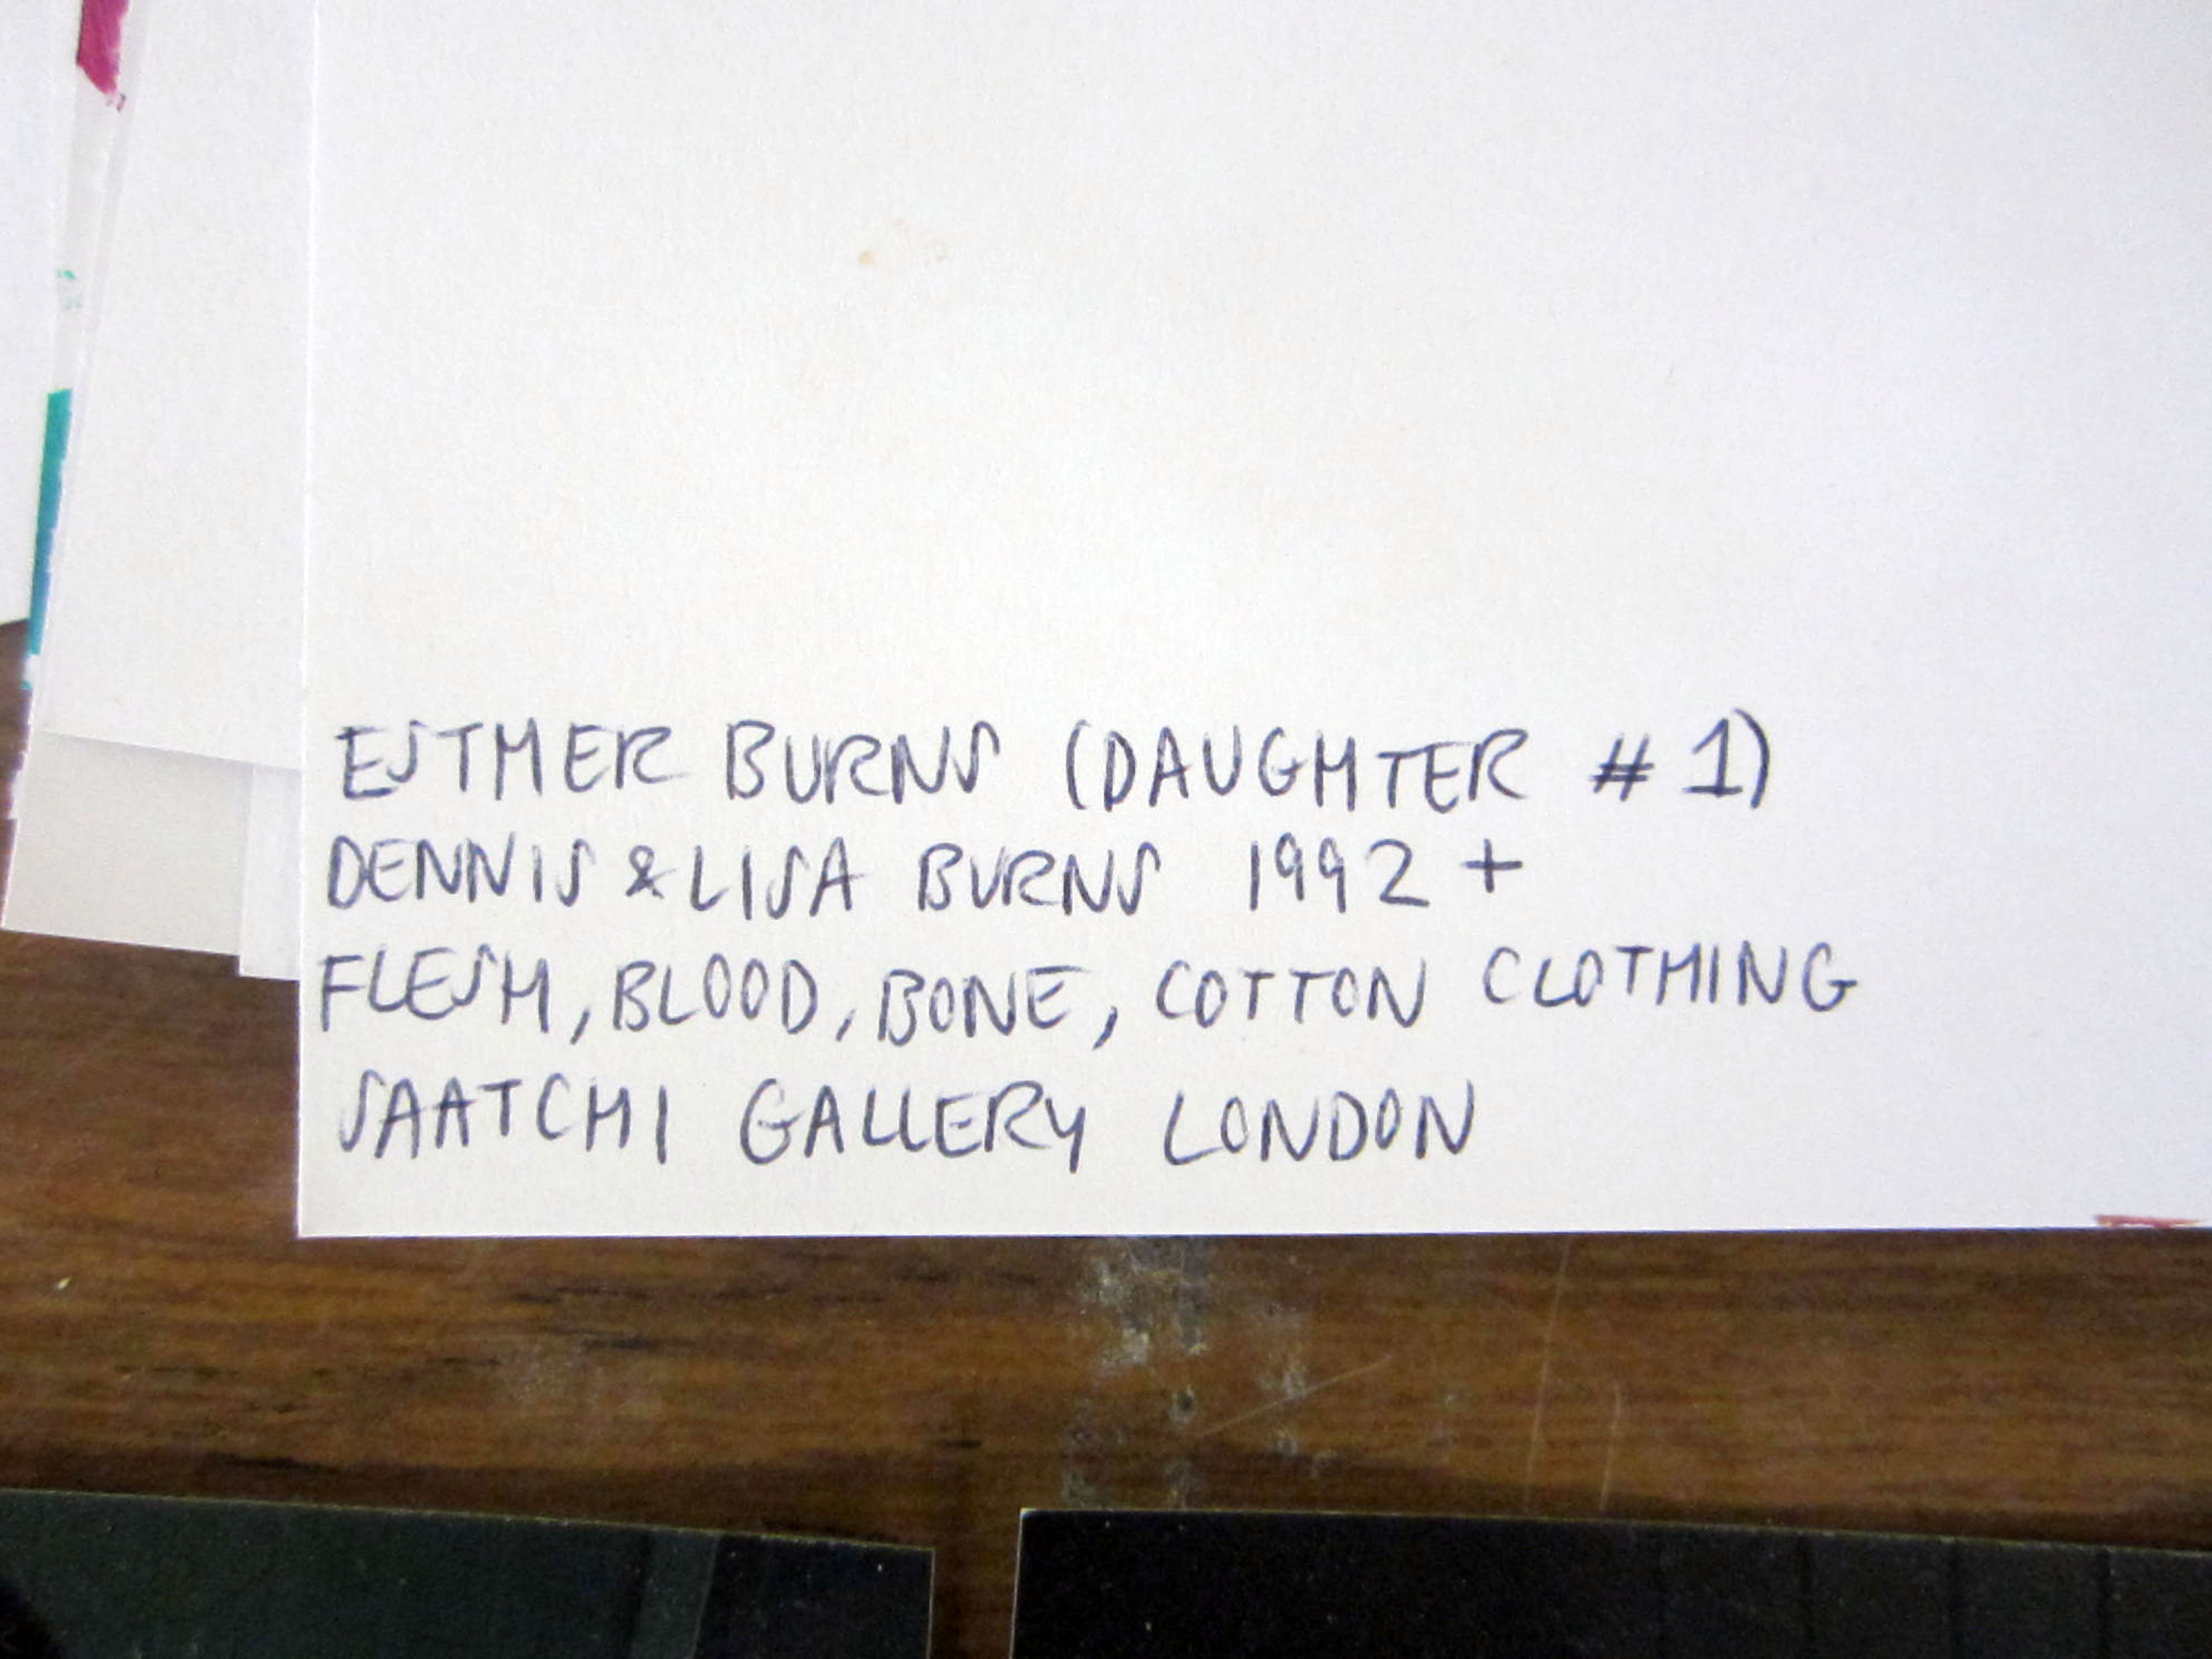 ESTHER BURNS (DAUGHTER # 1)
DENNIS & LISA BURNS 1992 +
FLESH, BLOOD, BONE, COTTON CLOTHING
SAATCHI GALLERY LONDON